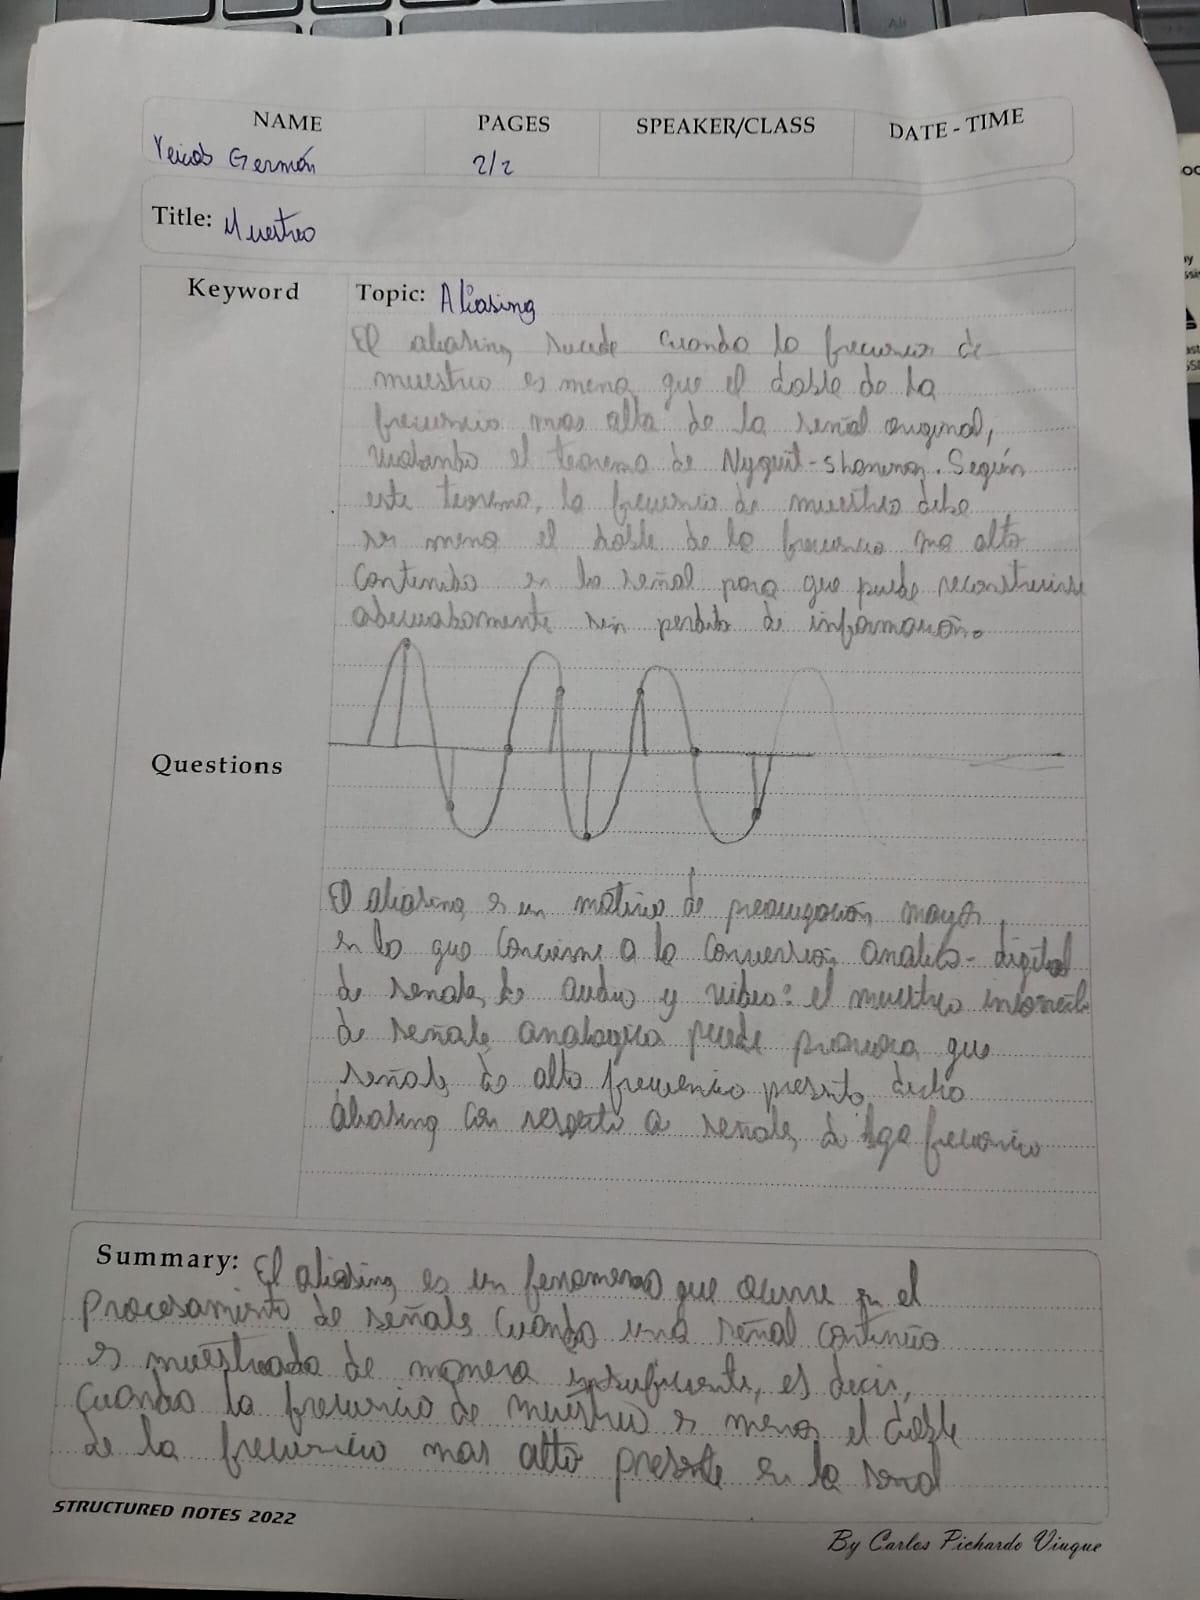 NAME
PAGES
SPEAKER/CLASS
DATE - TIME
Germán
2/2
Title: Muestreo
Keyword
Topic: Aliasing
El aliasing sucede cuando la frecuencia de
muestreo es menor que el doble de la
frecuencia mas alta de la señal original,
violando el teorema de Nyquit-Shannon. Según
este teorema, la frecuencia de muestreo debe
ser meno el doble de la frecuencia ma alta
contenida en la señal para que pueda reconstruirse
adecuadamente sin perdida de información.
Questions
El aliasing es un motivo de preocupación mayor
en lo que concierne a la conversión analico-digital
de señales de audio y video: el muestreo incorrecto
de señales analogica puede provocar que
señales de alta frecuencia presente dicho
aliasing con respecto a señales de baja frecuencia
Summary: El aliasing es un fenomeno que ocurre en el
procesamiento de señales cuando una señal continua
es muestreada de manera insuficiente, es decir,
cuando la frecuencia de muestreo es menor el doble
de la frecuencia mas alta presente en la señal
STRUCTURED NOTES 2022
By Carlos Pichardo Viuque